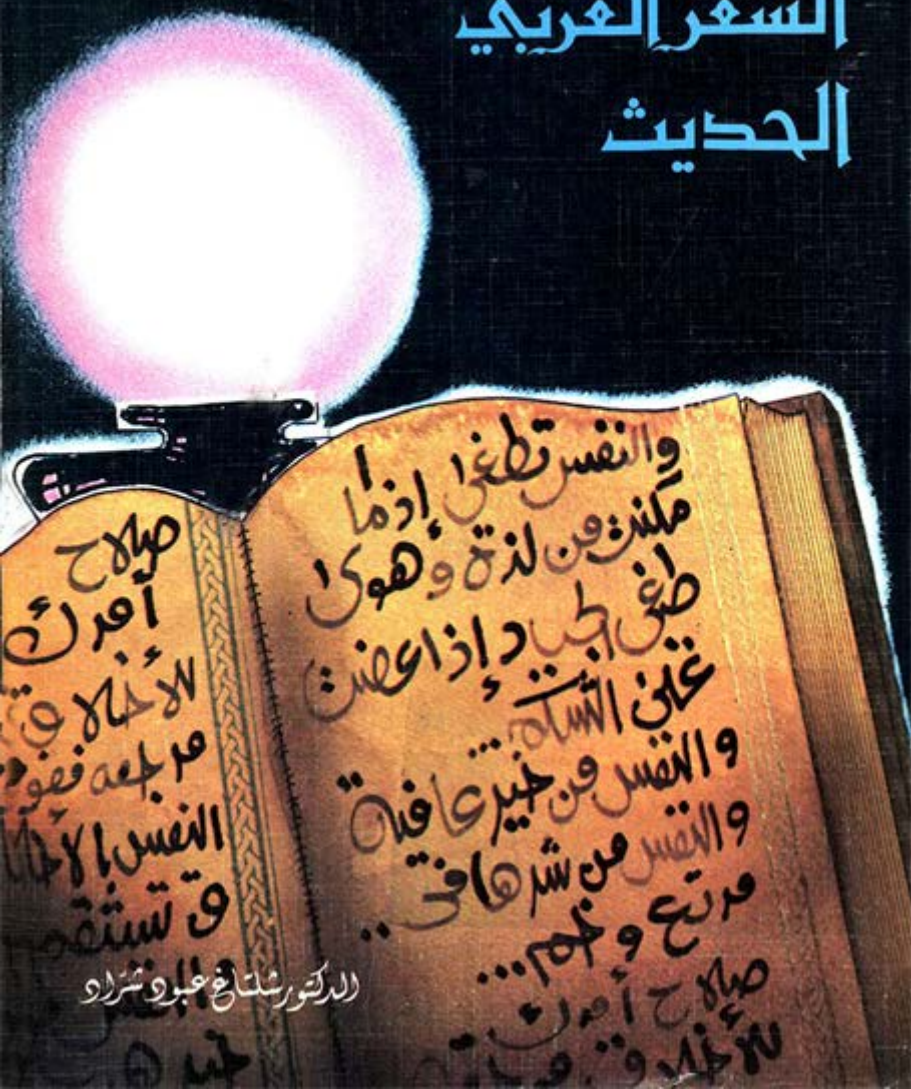 الشعر العربي
الحديث
والنفس تطغى إذا ما
مكنت من لذة وهوى
طغى الجياد إذا عضت
على الشكم...
والنفس من خير عافية
والنفس من شرها في..
مرتع وخم...
صلاح أمرك
للأخلاق مرجعه
صلاح
أمرك
للأخلاق
مرجعه فقوم
النفس بالأخلا
ق تستقم
والنفس من
خير
الدكتور شلتاغ عبود شراد